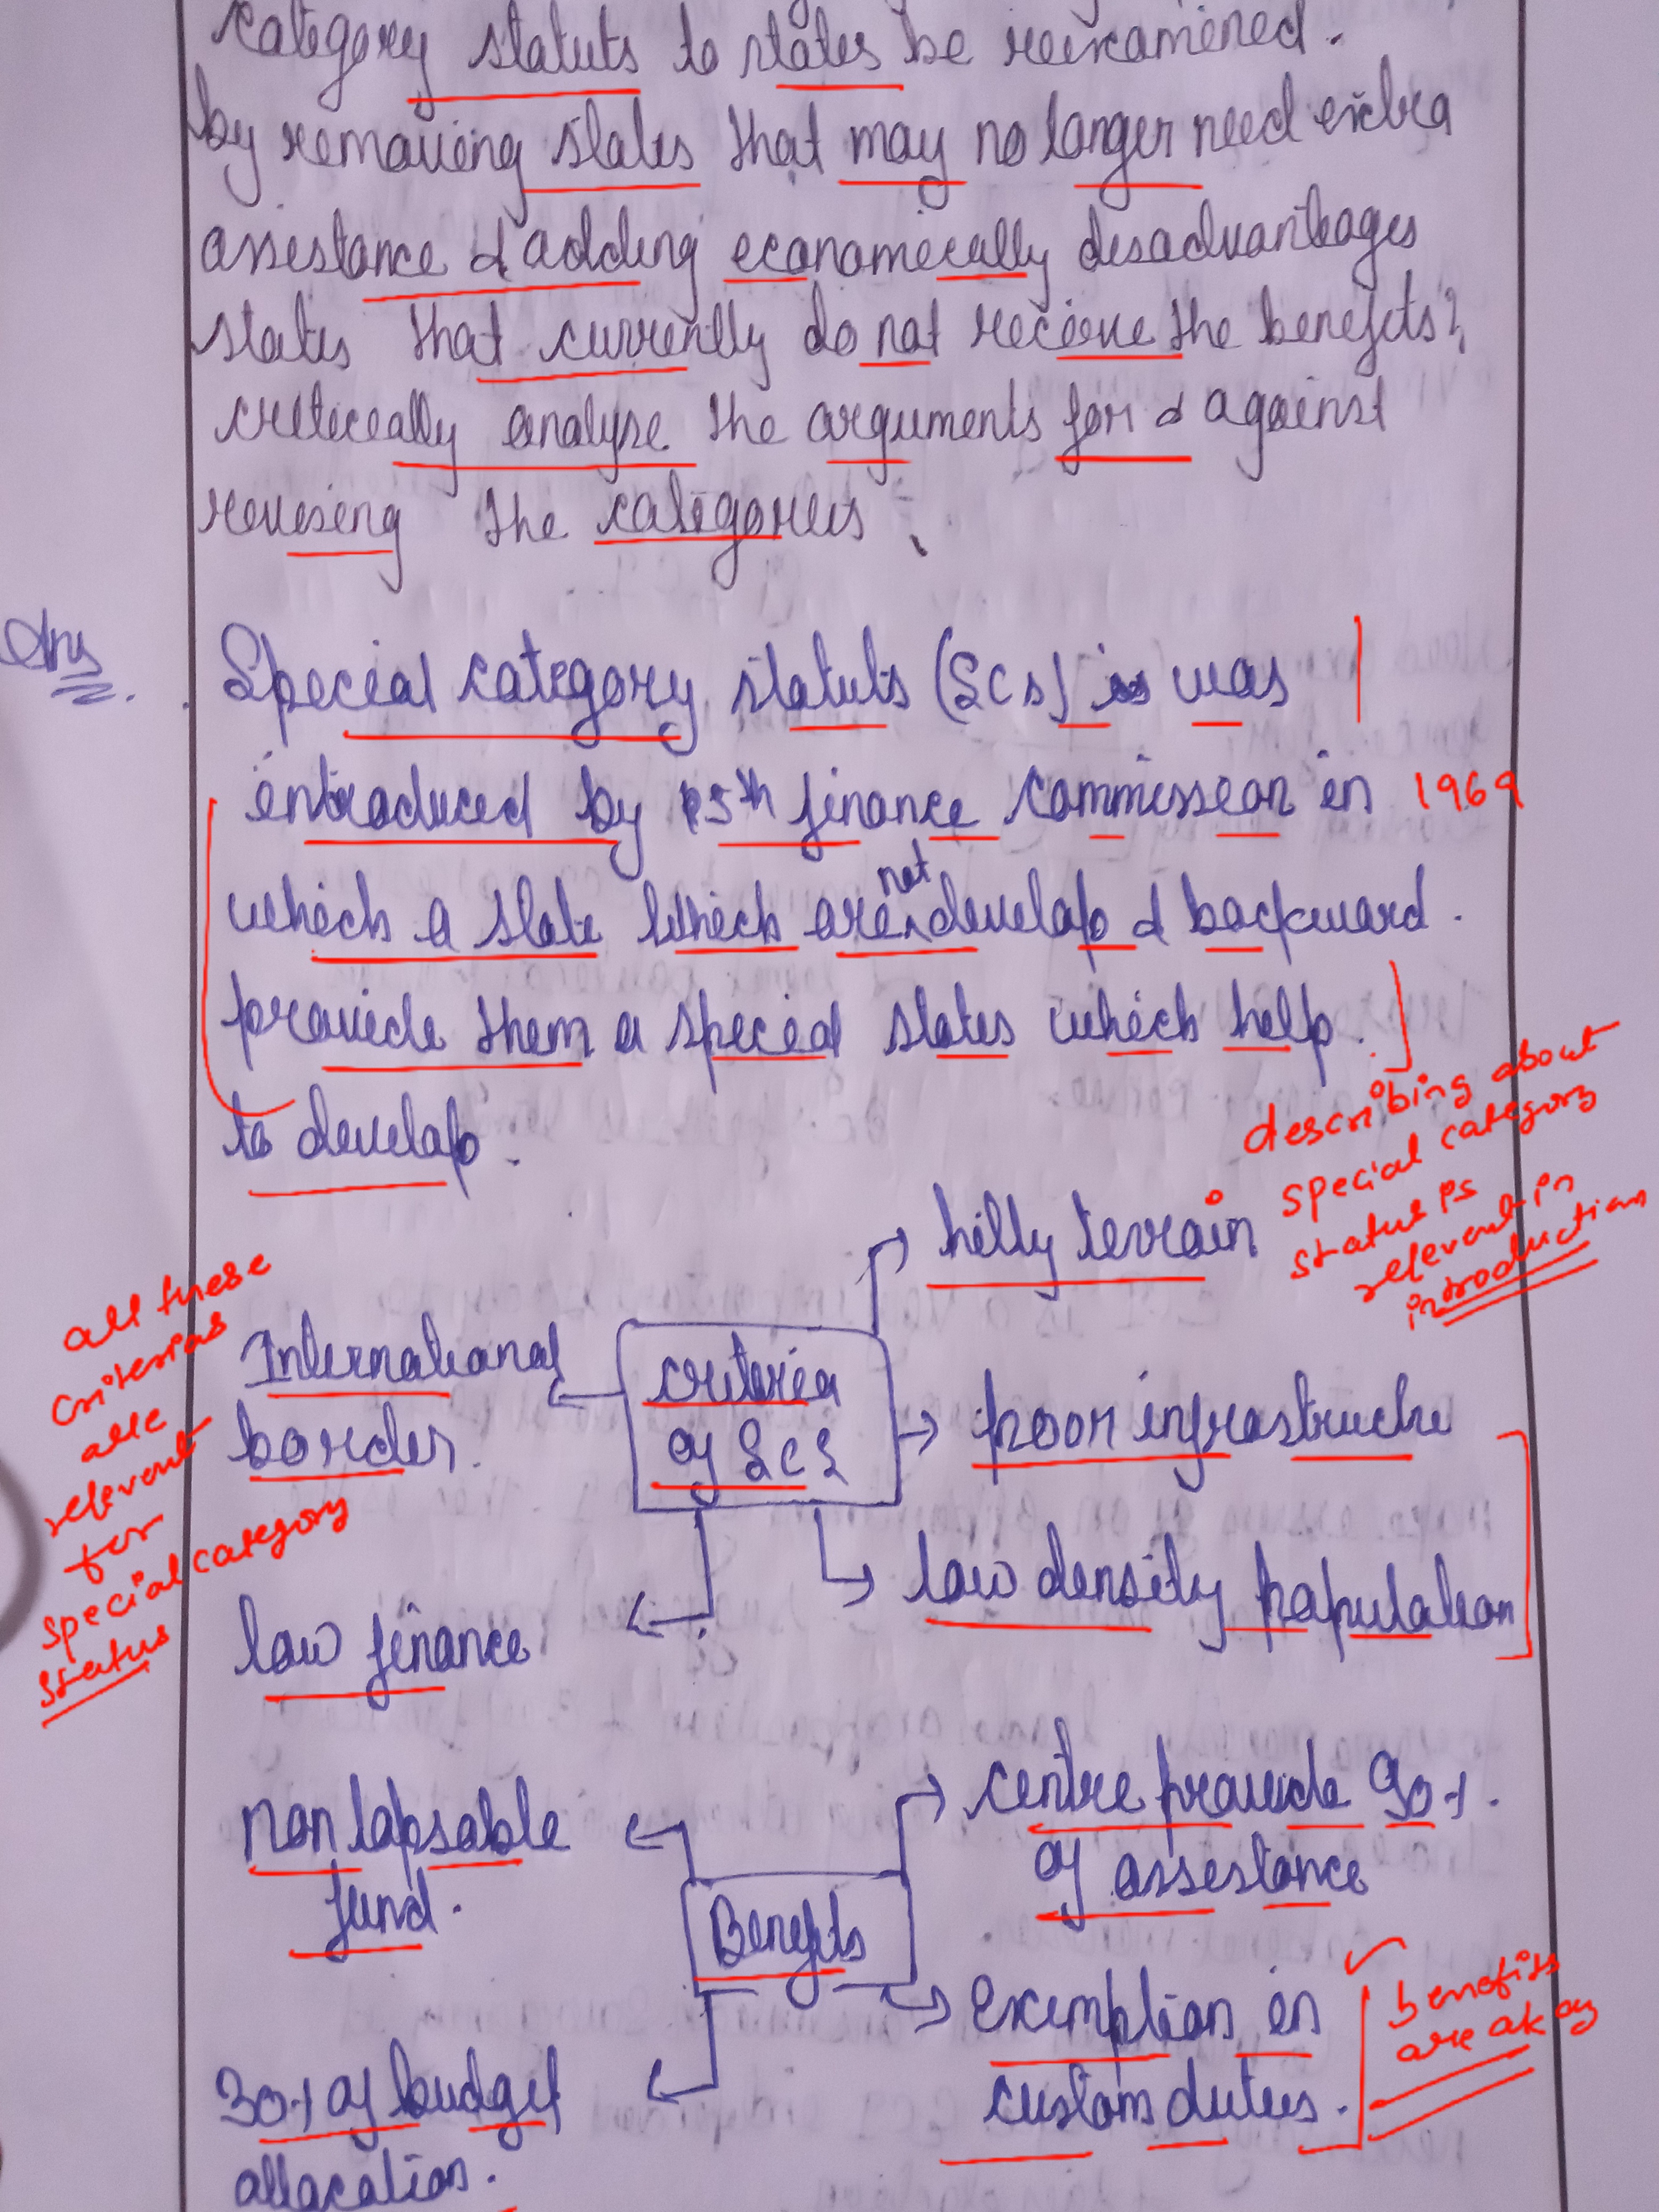 category statuts to states be reexamened.
by remoueng states that may no longer need extra
assestance & adding economecally desaduantages
states that currently do not receeve the benefits?
creteceally analyse the arguments for & against
reveseng the categories.
Ans.
Special category statuts (SCS) is was
entroduced by 5th finance commessean in 1969
whech a state which are not develop & backward.
provede them a special states whech help.
to develop.
describing about
special category
status is
relevent in
introduction
hilly terrain
all these
criterias
are
relevent
for
special category
status
International
border.
criteria
of SCS
poor infrastructure
low density population
low finance
non lapsable
fund.
Benefits
centre provede 90%.
of assestance
Exemption in
custom duties.
benefits
are okay
30% of budget
allocation.